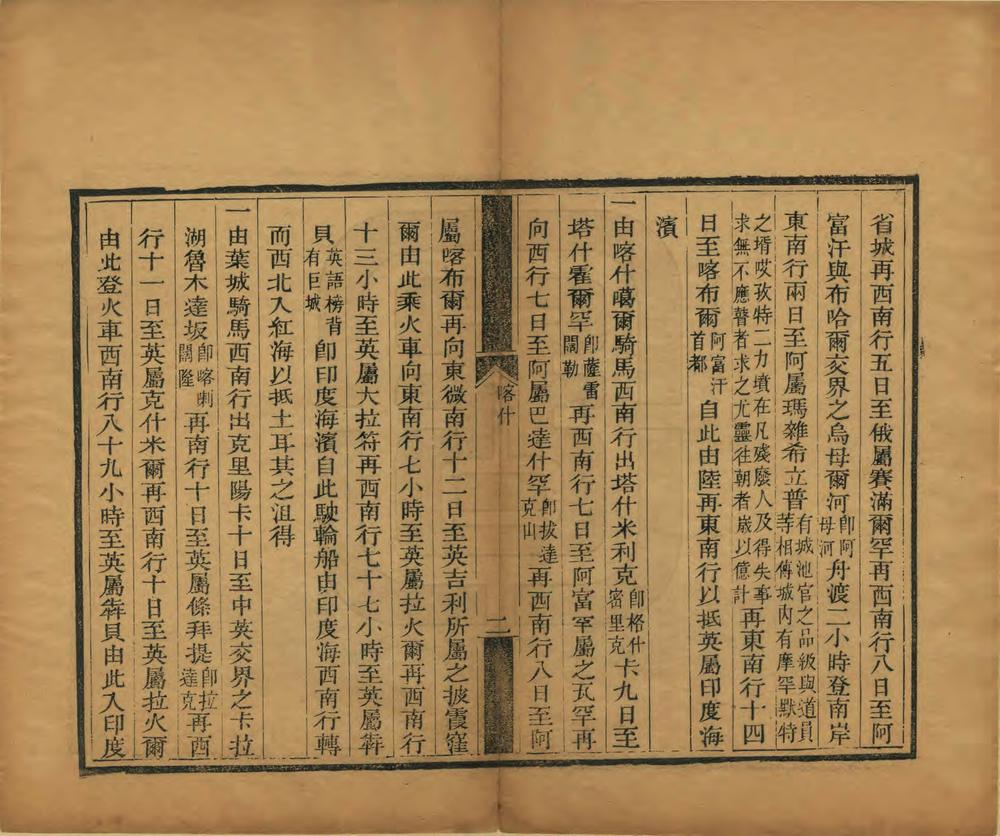 省城再西南行五日至俄屬賽滿爾罕再西南行八日至阿
富汗與布哈爾交界之烏母爾河卽阿母河舟渡二小時登南岸
東南行兩日至阿屬瑪雜希立普有城池官之品級與道員等相傳城內有摩罕默特
之壻哎孜特二力墳在凡殘廢人及得失事求無不應瞽者求之尤靈往朝者嵗以億計再東南行十四
日至喀布爾阿富汗首都自此由陸再東南行以抵英屬印度海
濱
一由喀什噶爾騎馬西南行出塔什米利克卽格什密里克卡九日至
塔什霍爾罕卽薩雷闊勒再西南行七日至阿富罕屬之瓦罕再
向西行七日至阿屬巴達什罕卽拔達克山再西南行八日至阿
喀什
二
屬喀布爾再向東微南行十二日至英吉利所屬之披霞窪
爾由此乘火車向東南行七小時至英屬拉火爾再西南行
十三小時至英屬大拉符再西南行七十七小時至英屬犇
貝英語榜背有巨城卽印度海濱自此駛輪船由印度海西南行轉
而西北入紅海以抵土耳其之沮得
一由葉城騎馬西南行出克里陽卡十日至中英交界之卡拉
湖魯木達坂卽喀喇闊隆再南行十日至英屬條拜提卽拉達克再西
行十一日至英屬克什米爾再西南行十日至英屬拉火爾
由此登火車西南行八十九小時至英屬犇貝由此入印度